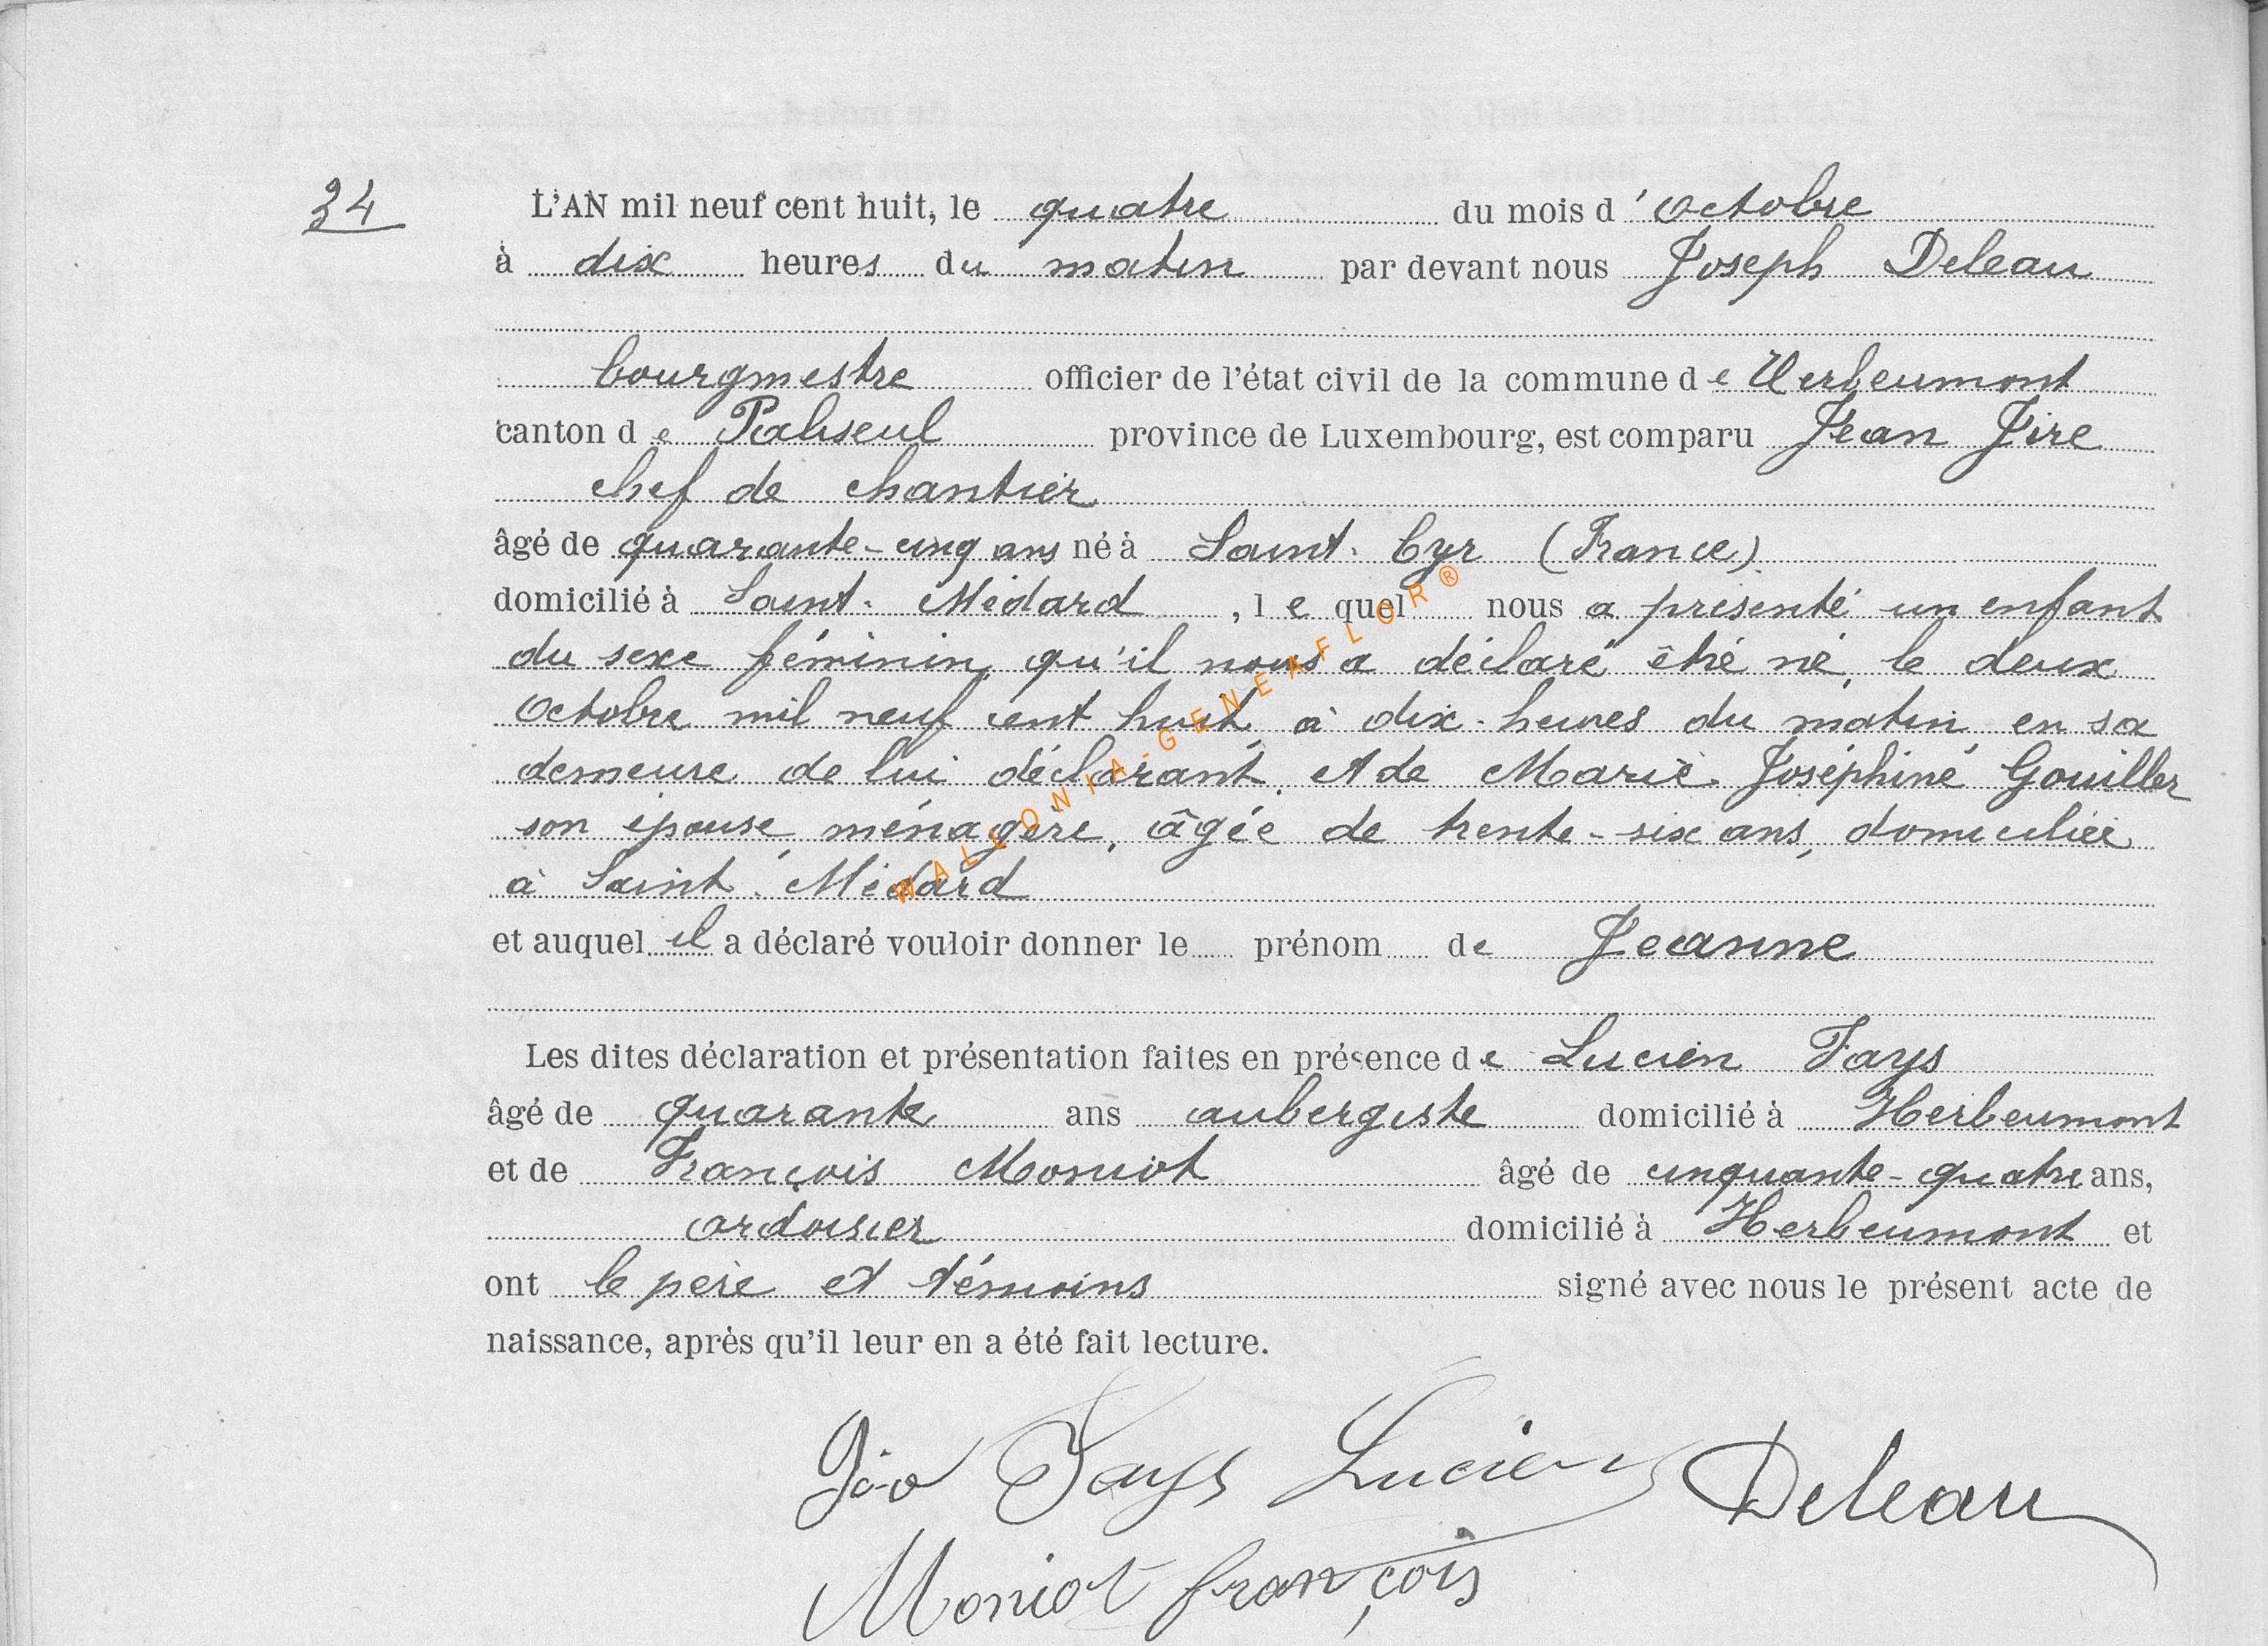 34
L'AN mil neuf cent huit, le quatre du mois d'octobre
à dix heures du matin par devant nous Joseph Deleau
bourgmestre officier de l'état civil de la commune de Herbeumont
canton de Paliseul province de Luxembourg, est comparu Jean
chef de chantier
âgé de quarante-cinq ans né à Saint-Cyr (France)
domicilié à Saint-Médard, lequel nous a présenté un enfant
du sexe féminin, qu'il nous a déclaré être né, le deux
octobre mil neuf cent huit, à dix-heures du matin, en sa
demeure de lui déclarant, et de Marie-Joséphine Gouiller
son épouse, ménagère, âgée de trente-six ans, domiciliée
à Saint-Médard
et auquel il a déclaré vouloir donner le prénom de Jeanne
Les dites déclaration et présentation faites en présence de Lucien Fays
âgé de quarante ans aubergiste domicilié à Herbeumont
et de François Moniot âgé de cinquante-quatre ans,
ardoisier domicilié à Herbeumont et
ont le père et témoins signé avec nous le présent acte de
naissance, après qu'il leur en a été fait lecture.
Fays Lucien Deleau
Moniot françois
WALLONIA-GENEAFLOR®